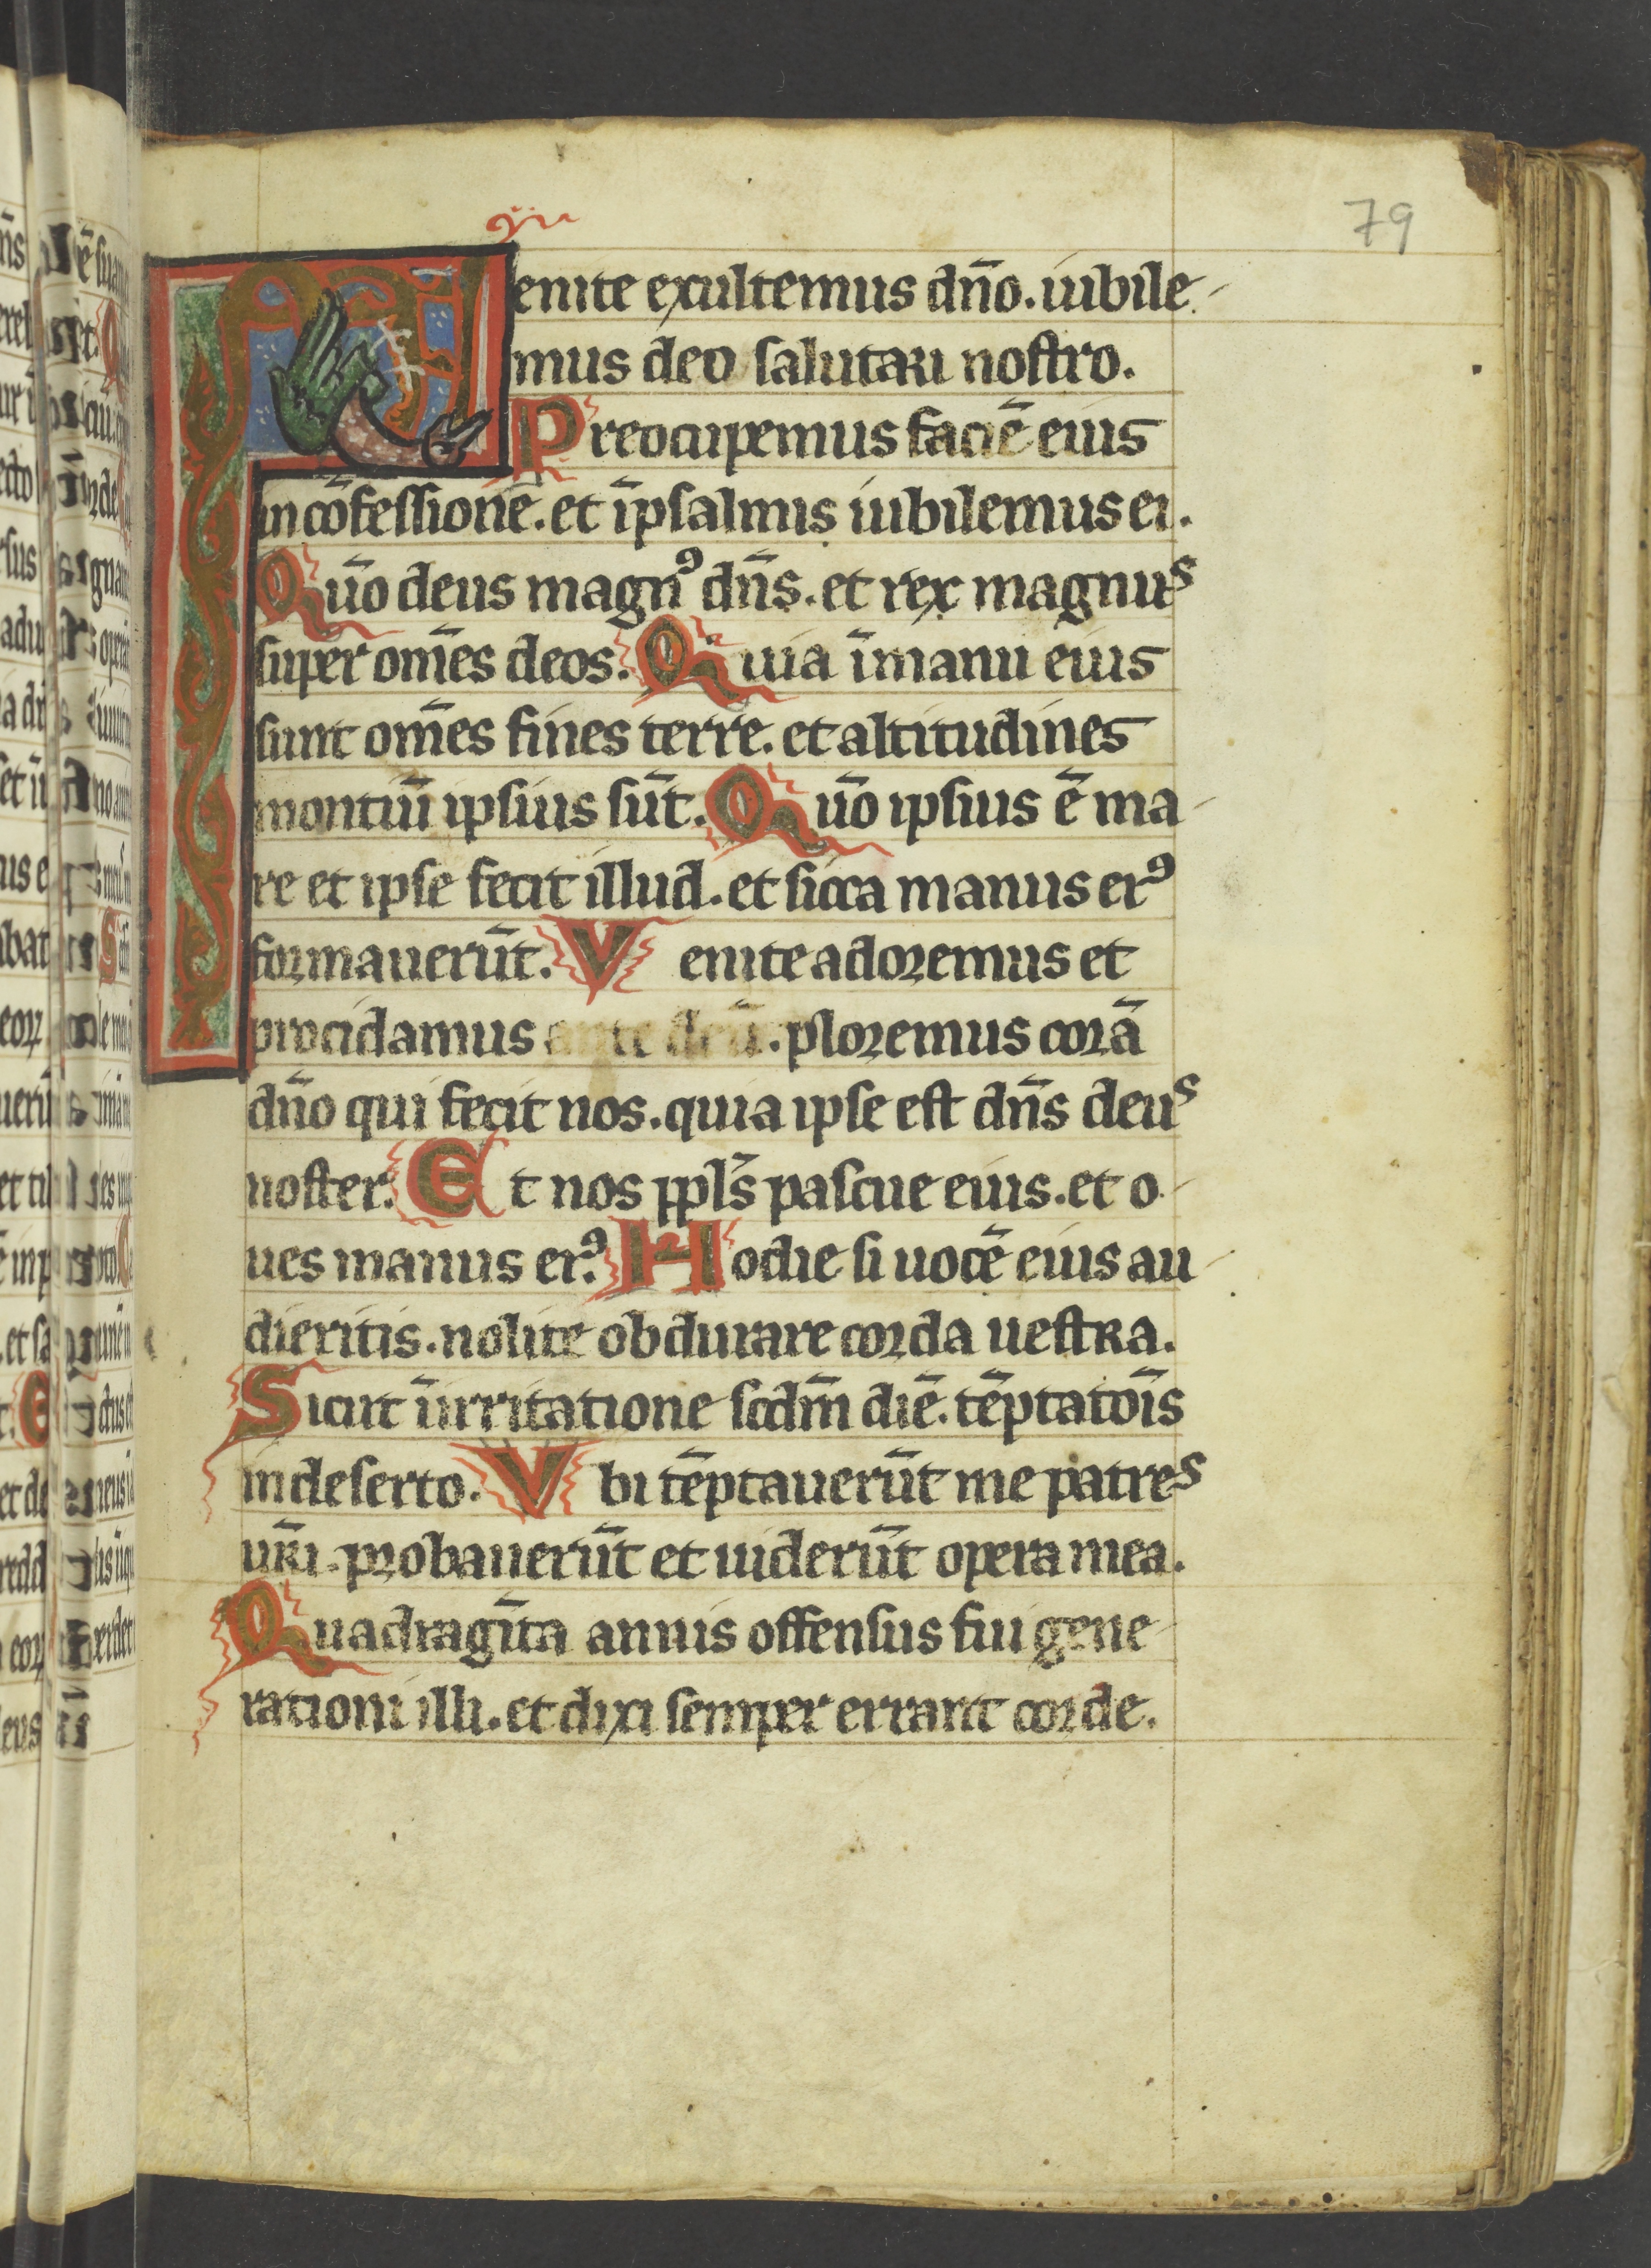 79
Venite exultemus dn̄o. iubile-
mus deo salutari nostro.
Preocupemus faciē eius
in cōfessione. et ī psalmis iubilemus ei.
Quō deus magn⁹ dn̄s. et rex magnus
super om̄es deos. Quia ī manu eius
sunt om̄es fines terre. et altitudines
montiū ipsius sūt. Quō ipsius ē ma-
re et ipse fecit illud. et sicca manus ei⁹
formauerūt. Venite adoremus et
procidamus ante deū. ploremus corā
dn̄o qui fecit nos. quia ipse est dn̄s deus
noster. Et nos ppl̄s pascue eius. et o-
ues manus ei⁹. Hodie si uocē eius au-
dieritis. nolite obdurare corda uestra.
Sicut ī irritatione scdm̄ diē. tēptatōis
in deserto. Vbi tēptauerūt me patres
ur̄i. probauerūt et uiderūt opera mea.
Quadragīta annis offensus fui gene-
rationi illi. et dixi semper errant corde.